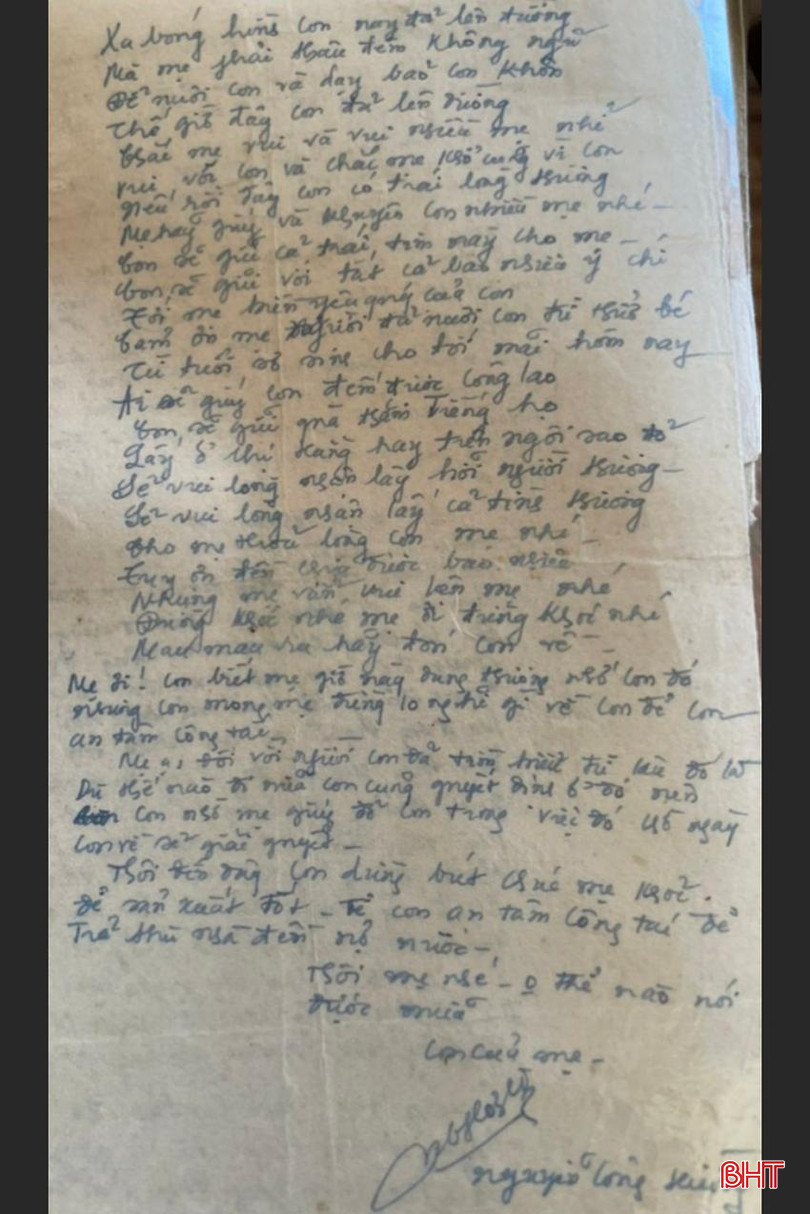 Xa bóng hình con nay đã lên đường
Mà mẹ phải thâu đêm không ngủ
Để nuôi con và dạy bảo con khôn
Thế giờ đây con đã lên đường
Chắc mẹ vui và vui nhiều mẹ nhỉ
vui với con và chắc mẹ khổ cũng vì con
Nếu rồi đây con có trái lòng thường
Mẹ hãy giúp và khuyên con nhiều mẹ nhé -
Con sẽ gửi cả trái tim này cho mẹ -
Con sẽ gửi với tất cả bao nhiêu ý chí
Tới mẹ hiền yêu quý của con
Cảm ơn mẹ người đã nuôi con từ thuở bé
Từ tuổi sơ sinh cho tới mãi hôm nay
Ai sẽ giúp con đếm được công lao
Con sẽ gửi quà thắm tiếng họ
Lấy ở chị Hằng hay trên ngôi sao đỏ
Sẽ vui lòng nhận lấy hỡi người thương -
Sẽ vui lòng nhận lấy cả tình thương
Cho mẹ hiểu lòng con mẹ nhé -
Tuy ơn đền chưa được bao nhiêu
Nhưng mẹ vẫn vui lên mẹ nhé
Đừng khóc nhé mẹ ơi đừng khóc nhé
Mau mau ra hãy đón con về -
Mẹ ơi! Con biết mẹ giờ này đang thương nhớ con đó
nhưng con mong mẹ đừng lo nghĩ gì về con để con
an tâm công tác -
Mẹ ạ, đối với người con đã tìm hiểu từ lâu đó là
Dù thế nào đi nữa con cũng quyết định ở đó nên
con nhờ mẹ giúp đỡ con trong việc đó chờ ngày
con về sẽ giải quyết -
Thôi đến đây con dừng bút chúc mẹ khoẻ.
để sản xuất tốt - để con an tâm công tác để
Trả thù nhà đền nợ nước -
Thôi mẹ nhé - o thể nào nói
được nữa
Con của mẹ -
Nguyễn Công
BHT